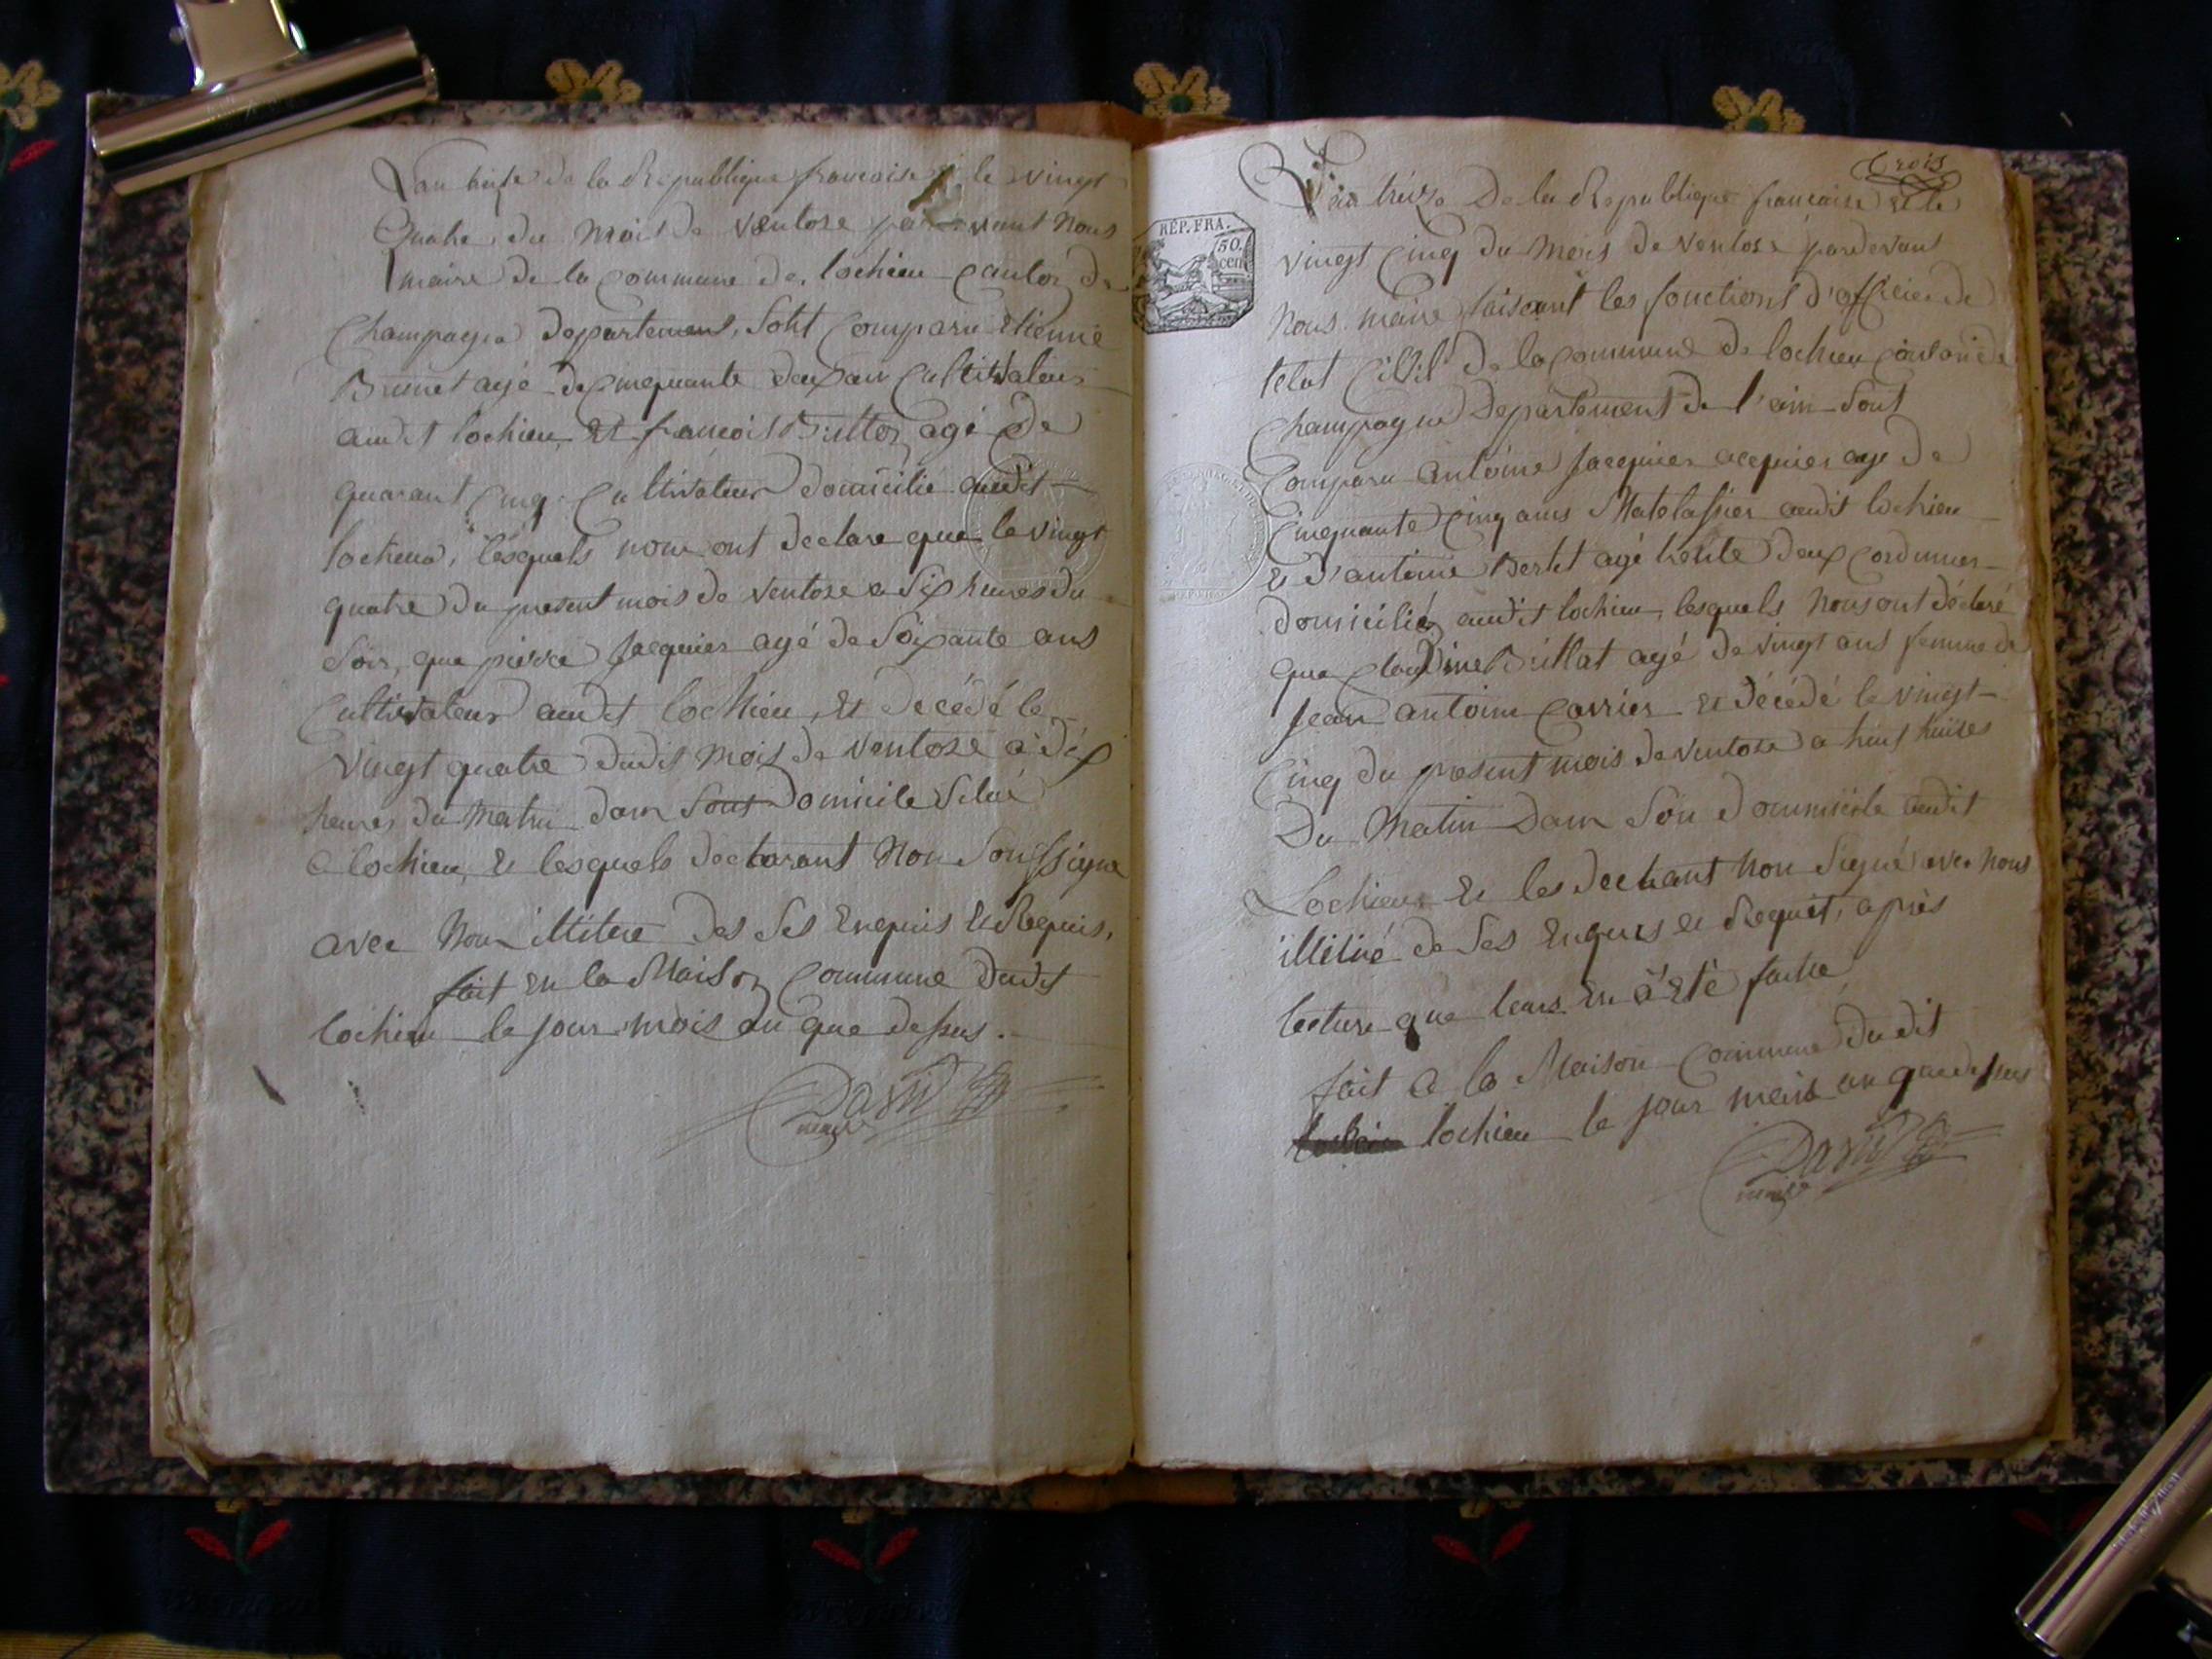 L'an treize de la République francoise le vingt
Quatre du mois de ventose pardevant nous
maire de la commune de lochieu canton de
Champagne departement, sont comparu Etienne
Brunet agé de cinquante deux an cultivateur
audit lochieu et francois Billion agé de
quarant cinq cultivateur domicilié audit
lochieu, lesquels nous ont declare que le vingt
quatre du present mois de ventose a six heures du
soir, que pierre Jacquier agé de soixante ans
Cultivateur audit lochieu, et decédé le
vingt quatre dudit mois de ventose à dix
heures du matin dans sont domicile situé
a lochieu, et lesquels declarant non soussigne
avec nous illitere des ses enquis et Requis,
fait en la Maison commune dudit
lochieu le jour mois an que dessus.
David
maire
trois
L'an treize de la Republique francaise et le
RÉP. FRA.
50.
cen.
vingt cinq du mois de ventose pardevant
nous maire faiscant les fonctions d'officier de
letat civil de la commune de lochieu canton de
Champagne Departement de l'ain sont
Comparu antoine Jacquier acquier agé de
Cinquante cinq ans Matelassier audit lochieu
et d'antoine Bertet agé trente deux cordonnier
domicilié audit lochieu, lesquels nous ont déclaré
que claudine Brillat agé de vingt ans femme de
Jean antoine carrier et décédé le vingt
Cinq du present mois de ventose a huis heures
Du Matin Dans son dommicile audit
Lochieu et les declant non signé avec nous
illitiré de ses enquis et Requit, après
lecture que leurs en à été faitte
fait a la Maison commune dudit
lochieu le jour mois an que dessus
David
maire